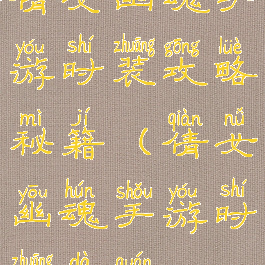 yóu shí zhuāng gōng lüè
游时装攻略
mì jí qiàn nǚ
秘籍（倩女
yōu hún shǒu yóu shí
幽魂手游时
zhuāng dà quán